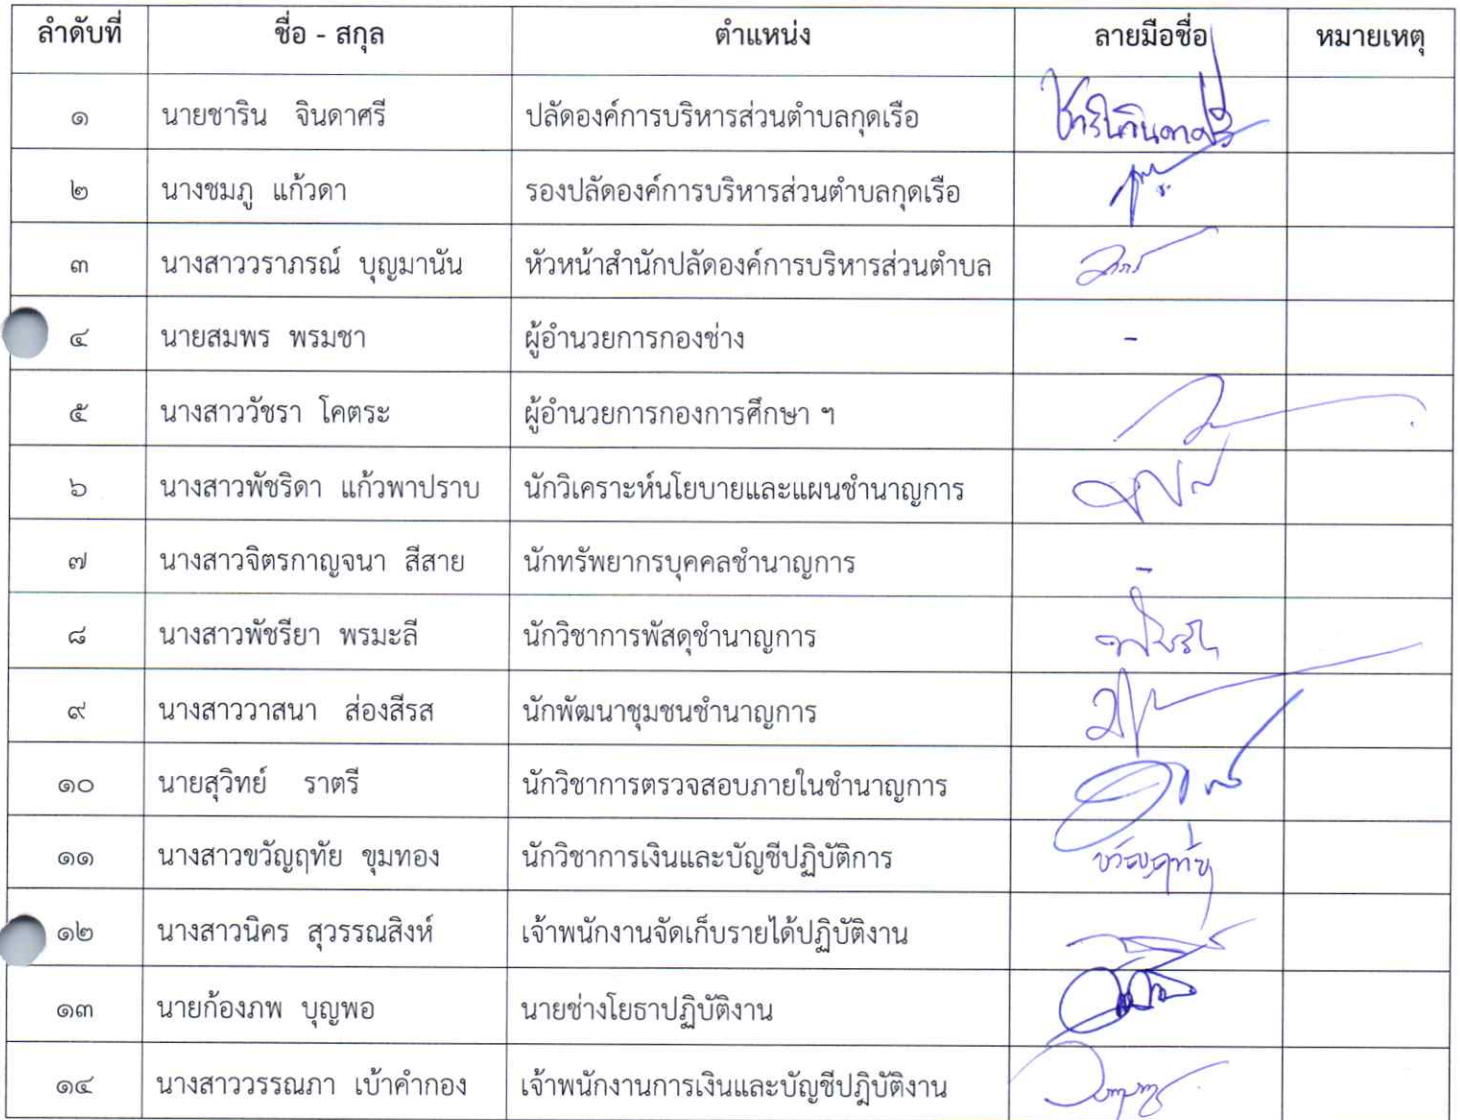 ลำดับที่ ชื่อ - สกุล ตำแหน่ง ลายมือชื่อ หมายเหตุ
๑ นายชาริน จินดาศรี ปลัดองค์การบริหารส่วนตำบลกุดเรือ
๒ นางชมภู แก้วดา รองปลัดองค์การบริหารส่วนตำบลกุดเรือ
๓ นางสาววราภรณ์ บุญมานัน หัวหน้าสำนักปลัดองค์การบริหารส่วนตำบล
๔ นายสมพร พรมชา ผู้อำนวยการกองช่าง -
๕ นางสาววัชรา โคตระ ผู้อำนวยการกองการศึกษา ฯ
๖ นางสาวพัชริดา แก้วพาปราบ นักวิเคราะห์นโยบายและแผนชำนาญการ
๗ นางสาวจิตรกาญจนา สีสาย นักทรัพยากรบุคคลชำนาญการ -
๘ นางสาวพัชรียา พรมะลี นักวิชาการพัสดุชำนาญการ
๙ นางสาววาสนา ส่องสีรส นักพัฒนาชุมชนชำนาญการ
๑๐ นายสุวิทย์ ราตรี นักวิชาการตรวจสอบภายในชำนาญการ
๑๑ นางสาวขวัญฤทัย ขุมทอง นักวิชาการเงินและบัญชีปฏิบัติการ ขวัญฤทัย
๑๒ นางสาวนิคร สุวรรณสิงห์ เจ้าพนักงานจัดเก็บรายได้ปฏิบัติงาน
๑๓ นายก้องภพ บุญพอ นายช่างโยธาปฏิบัติงาน
๑๔ นางสาววรรณภา เบ้าคำกอง เจ้าพนักงานการเงินและบัญชีปฎิบัติงาน